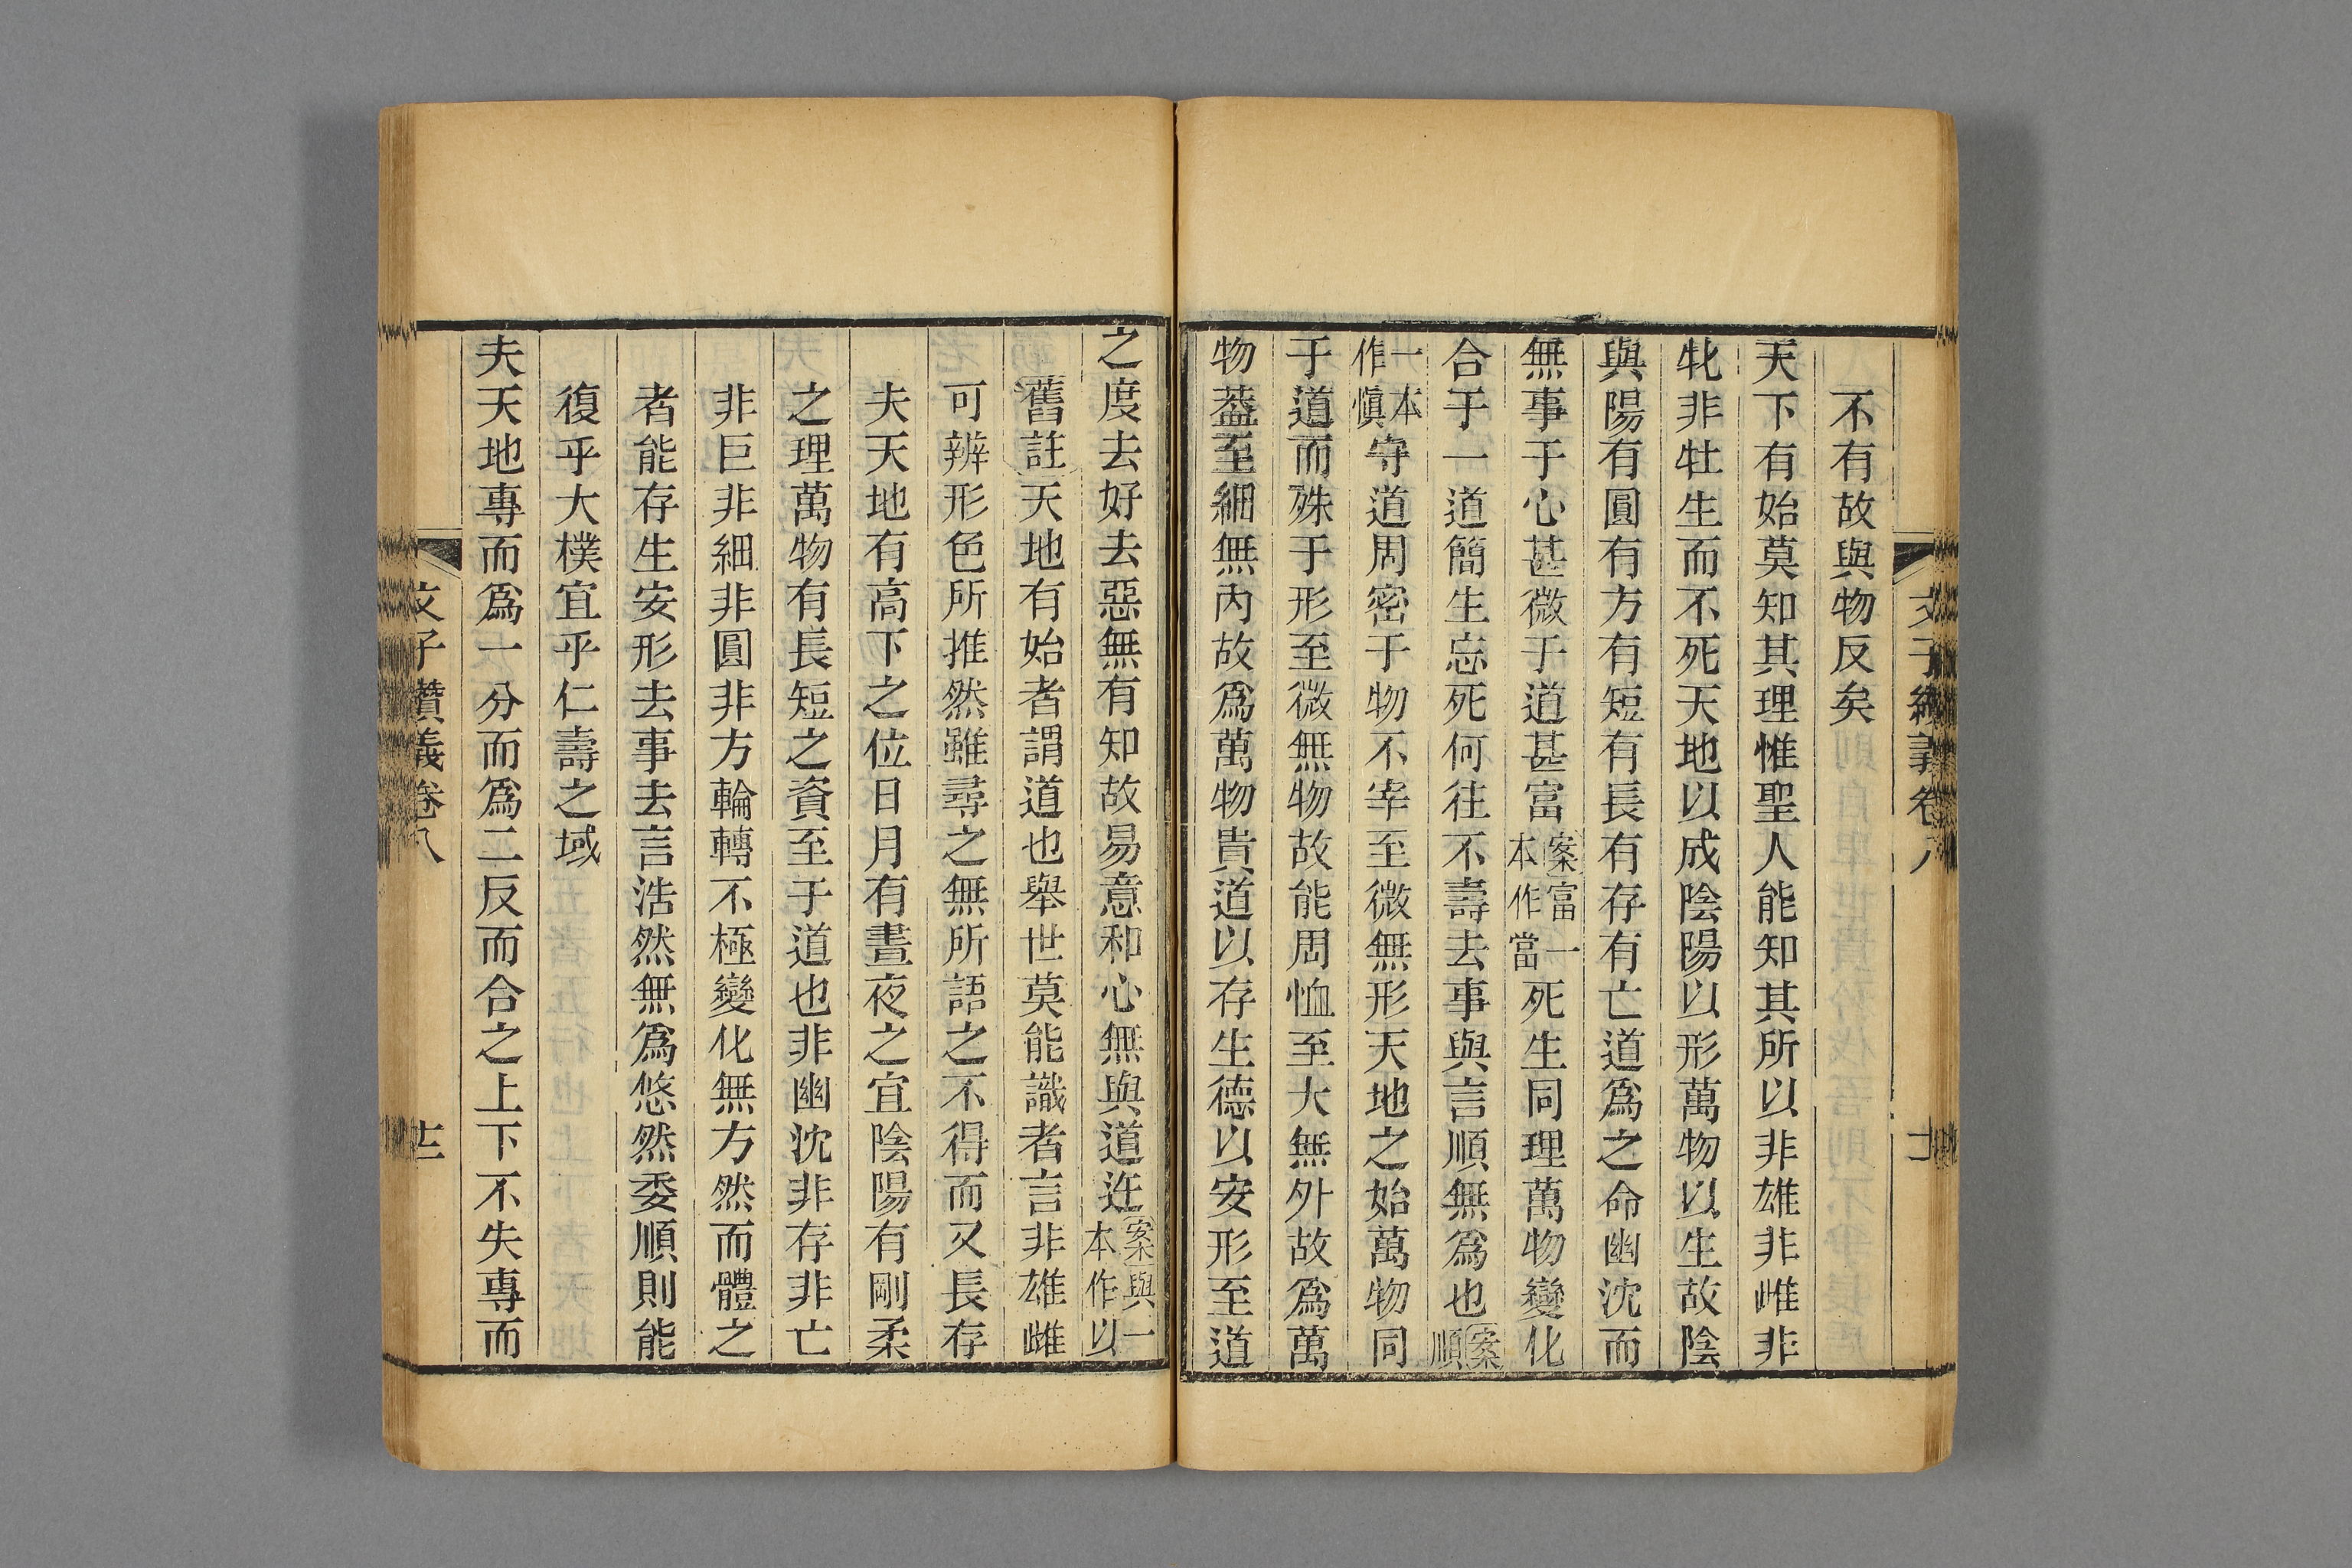 文子纘義卷八
不有故與物反矣
天下有始莫知其理惟聖人能知其所以非雄非雌非
牝非牡生而不死天地以成陰陽以形萬物以生故陰
與陽有圓有方有短有長有存有亡道爲之命幽沈而
無事于心甚微于道甚富案富一本作當死生同理萬物變化
合于一道簡生忘死何往不壽去事與言順無爲也案順
一本作愼守道周密于物不宰至微無形天地之始萬物同
于道而殊于形至微無物故能周恤至大無外故爲萬
物葢至細無內故爲萬物貴道以存生德以安形至道
之度去好去惡無有知故易意和心無與道迕案與一本作以
舊註天地有始者謂道也舉世莫能識者言非雄雌
可辨形色所推然雖尋之無所語之不得而又長存
夫天地有高下之位日月有晝夜之宜陰陽有剛柔
之理萬物有長短之資至于道也非幽沈非存非亡
非巨非細非圓非方輪轉不極變化無方然而體之
者能存生安形去事去言浩然無爲悠然委順則能
復乎大樸宜乎仁壽之域
夫天地專而爲一分而爲二反而合之上下不失專而
文子纘義卷八